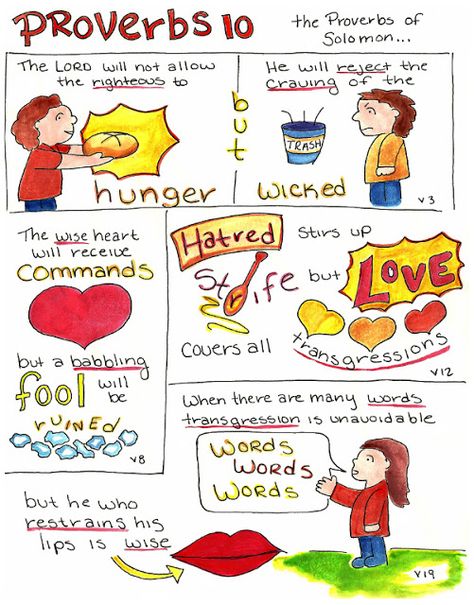 Proverbs 10
the Proverbs of
Solomon...
The LORD will not allow
the righteous to
hunger
but
He will reject the
craving of the
TRASH
wicked
v3
The wise heart
will receive
commands
but a babbling
fool will
be
ruined
v8
Hatred stirs up
Strife but LOVE
covers all transgressions
v12
When there are many words
transgression is unavoidable
words
words
words
but he who
restrains his
lips is wise
v19